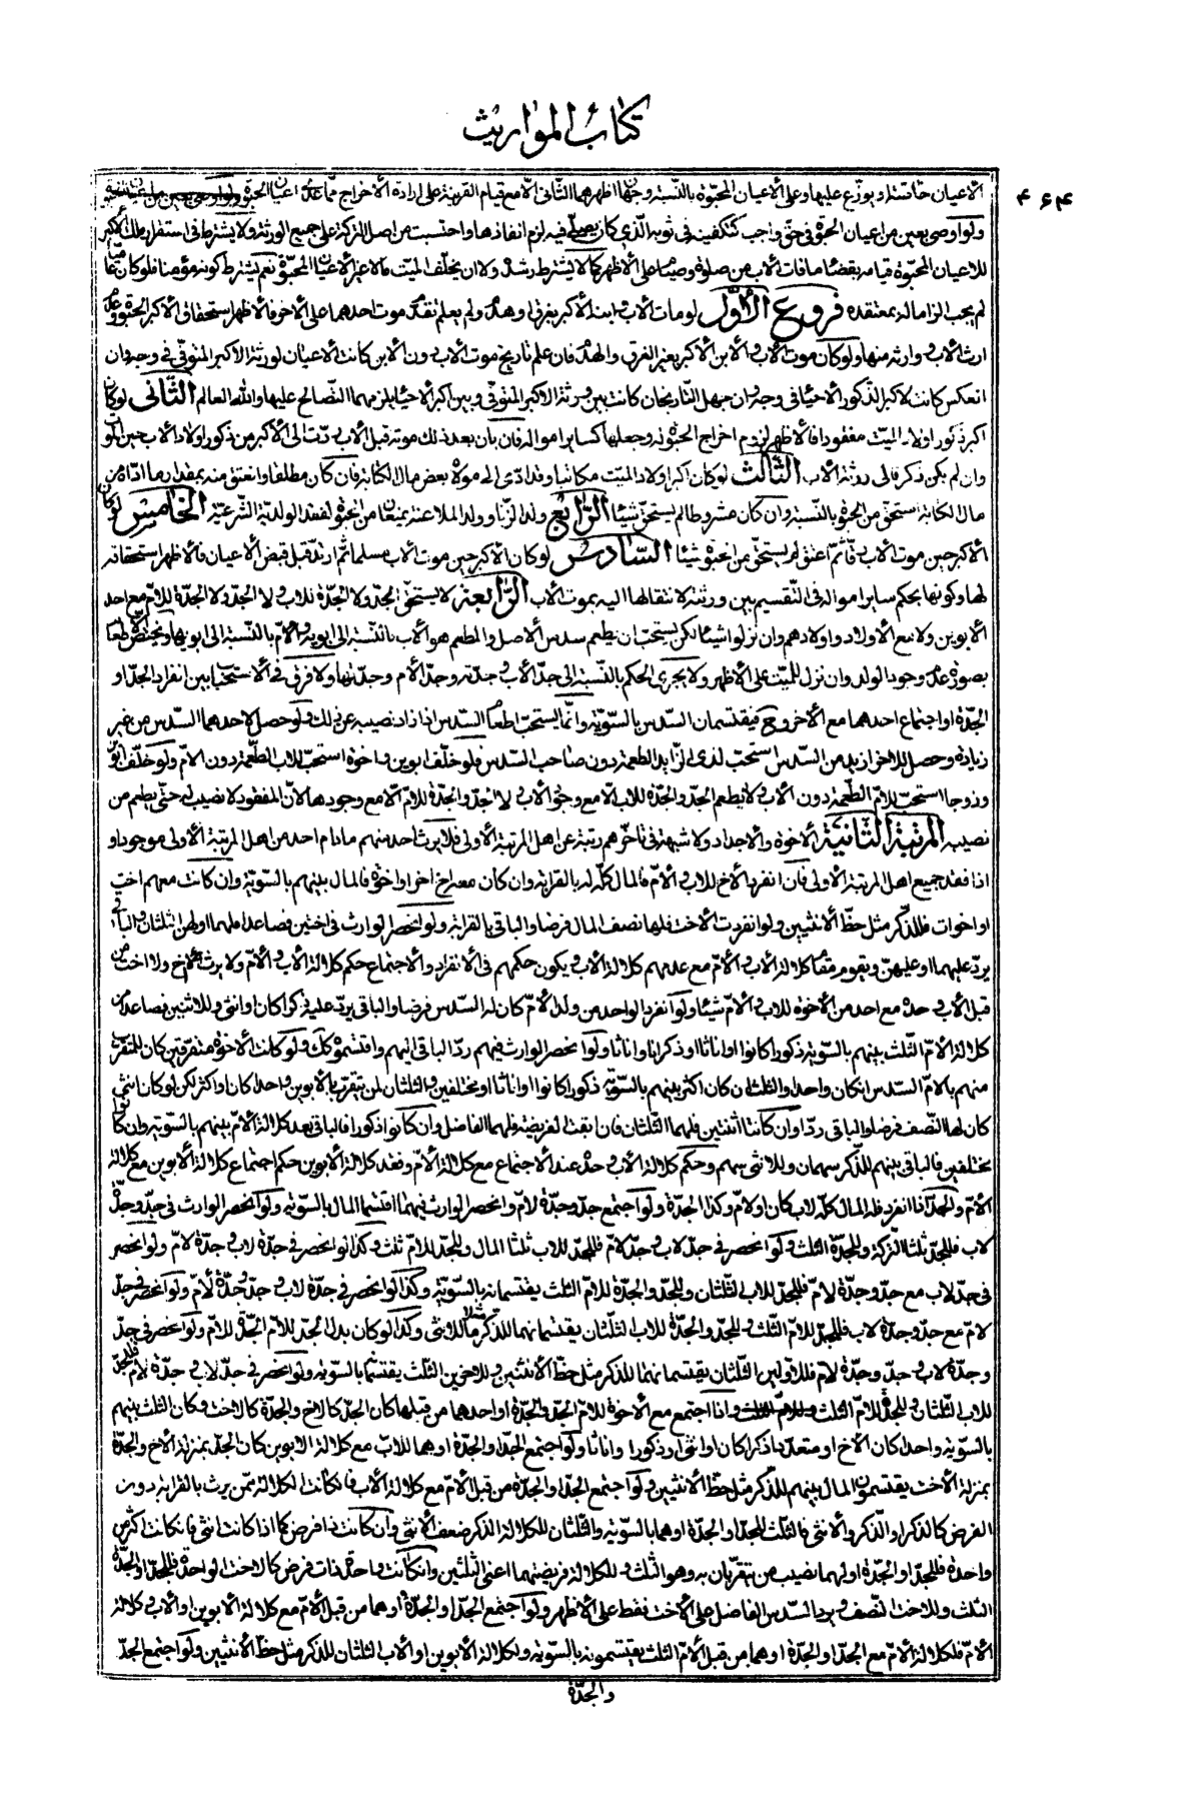 كتاب المواريث
۴۶۴
الاعيان خاصّة او يوزع عليها وعلى الاعيان المحبوّة بالنّسبة وجهان اظهرهما الثّانى الّا مع قيام القرينة على ارادة الاخراج ممّا عدا اعيان الحبوة
ولو اوصى بعين من اعيان الحبوة فى حق واجب كتكفينه فى ثوبه الّذى كان يصلّى فيه لزم انفاذها واحتسبت من اصل التركة على جميع الورثة ولا يشترط فى استقرار ملك الاكبر
للاعيان المحبوّة قيامه بقضاء ما فات الاب من صلوة وصيام على الاظهر كما لا يشترط رشده ولا ان يخلّف الميّت مالا غير الاعيان المحبوّة نعم يشترط كونه مؤمنا فلو كان
لم يجب الزاما له بمعتقده فروع الاوّل لو مات الاب وابنه الاكبر بغرق او هدم ولم يعلم تقدّم موت احدهما على الاخر فالاظهر استحقاق الاكبر الحبوة
ارث الاب وارثه منها ولو كان موت الاب والابن الاكبر بغير الغرق والهدم فان علم تاريخ موت الاب دون الابن كانت الاعيان لورثة الاكبر المتوفّى فى وجه وان
انعكس كانت لاكبر الذّكور الاحياء فى وجه وان جهل التّاريخان كانت بين ورثة الاكبر المتوفّى وبين اكبر الاحياء يلزمهما التّصالح عليها والله العالم الثّانى لو كان
اكبر ذكور اولاد الميّت مفقودا فالاظهر لزوم اخراج الحبوة له وجعلها كسائر امواله فان بان بعد ذلك موته قبل الاب ردّت الى الاكبر من ذكور اولاد الاب حين الموت
وان لم يكن ذكر فالى ورثة الاب الثّالث لو كان اكبر اولاد الميّت مكاتبا وقد ادّى الى مولاه بعض مال الكتابة فان كان مطلقا وانعتق منه بمقدار ما ادّاه من
مال الكتابة استحقّ من الحبوة بالنّسبة وان كان مشروطا لم يستحقّ شيئا الرّابع ولد الزّنا وولد الملاعنة يمنعان من الحبوة لفقد الولديّة الشّرعيّة الخامس لو كان
الاكبر حين موت الاب رقّا ثمّ اعتق لم يستحقّ من الحبوة شيئا السّادس لو كان الاكبر حين موت الاب مسلما ثمّ ارتدّ قبل قبض الاعيان فالاظهر استحقاقه
لها وكونها بحكم ساير امواله فى التّقسيم بين ورثته لانتقالها اليه بموت الاب الرّابعة لا يستحقّ الجدّ ولا الجدّة للاب ولا الجدّ ولا الجدّة للامّ مع احد
الابوين ولا مع الاولاد واولادهم وان نزلوا شيئا لكن يستحبّ ان يطعم سدس الاصل والمطعم هو الاب بالنّسبة الى ابويه والامّ بالنّسبة الى ابويها ويختصّ الاطعام
بصورة عدم وجود الولد وان نزل للميّت على الاظهر ولا يجرى الحكم بالنّسبة الى جدّ الاب وجدّته وجدّ الام وجدّتها ولا فرق فى الاستحباب بين انفراد الجدّ او
الجدّة او اجتماع احدهما مع الاخر وح فيقتسمان السّدس بالسّويّة وانّما يستحبّ اطعام السّدس اذا زاد نصيبه عن ذلك ولو حصل لاحدهما السّدس من غير
زيادة وحصل للاخر ازيد من السّدس استحبّ لذى الزّايد الطعمة دون صاحب السّدس فلو خلّف ابوين واخوة استحبّ للاب الطّعمة دون الامّ ولو خلّف ابوين
وزوجا استحبّ للامّ الطّعمة دون الاب ولا يطعم الجدّ والجدّة للاب الّا مع وجود الاب ولا الجدّ والجدّة للامّ الّا مع وجودها لانّ المفقود لا نصيب له حتّى يطعم من
نصيبه المرتبة الثّانية الاخوة والاجداد ولا شبهة فى تاخّرهم رتبة عن اهل المرتبة الاولى فلا يرث احد منهم مادام احد من اهل المرتبة الاولى موجودا و
اذا فقد جميع اهل المرتبة الاولى فان انفرد الاخ للاب والامّ فالمال كلّه له بالقرابة وان كان معه اخ اخر او اخوة فالمال بينهم بالسّويّة وان كانت معهم اخت
او اخوات فللذّكر مثل حظّ الانثيين ولو انفردت الاخت فلها نصف المال فرضا والباقى بالقرابة ولو انحصر الوارث فى اختين فصاعدا فلهما او لهنّ الثّلثان والباقى
يردّ عليهما او عليهنّ ويقوم مقام كلالة الاب والامّ مع عدمهم كلالة الاب ويكون حكمهم فى الانفراد والاجتماع حكم كلالة الاب والامّ ولا يرث اخ ولا اخت من
قبل الاب وحده مع احد من الاخوة للاب والامّ شيئا ولو انفرد الواحد من ولد الامّ كان له السّدس فرضا والباقى يردّ عليه ذكرا كان او انثى وللاثنين فصاعدا من
كلالة الامّ الثّلث بينهم بالسّويّة ذكورا كانوا او اناثا او ذكرانا واناثا ولو انحصر الوارث فيهم ردّ الباقى اليهم واقتسموه كك ولو كانت الاخوة متفرّقين كان للمتقرّب
منهم بالامّ السّدس ان كان واحدا والثلث ان كان اكثر بينهم بالسّويّة ذكورا كانوا او اناثا او مختلفين والثلثان لمن تقرّب بالابوين واحدا كان او اكثر لكن لو كان انثى
كان لها النّصف فرضا والباقى ردّا وان كانتا اثنتين فلهما الثّلثان فان ابقت الفريضة فلهما الفاضل وان كانوا ذكورا فالباقى بعد كلالة الامّ بينهم بالسّويّة وان كانوا
مختلفين فالباقى بينهم للذّكر سهمان وللانثى سهم وحكم كلالة الاب وحده عند الاجتماع مع كلالة الامّ وفقد كلالة الابوين حكم اجتماع كلالة الابوين مع كلالة
الامّ والجدّ اذا انفرد فله المال كلّه لاب كان او لامّ وكذا الجدّة ولو اجتمع جدّ وجدّة لامّ وانحصر الوارث فيهما اقتسما المال بالسّويّة ولو انحصر الوارث فى جدّ وجدّة
لاب فللجدّ ثلثا التركة وللجدّة الثلث ولو انحصر فى جدّ لاب وجدّ لامّ فللجدّ للاب ثلثا المال وللجدّ للامّ ثلث وكذا لو انحصر فى جدّة لاب وجدّة لامّ ولو انحصر
فى جدّ لاب مع جدّ وجدّة لامّ فللجدّ للاب الثّلثان وللجدّ والجدّة للامّ الثلث يقتسمانه بالسّويّة وكذا لو انحصر فى جدّة لاب وجدّ وجدّة لامّ ولو انحصر فى جدّ
لامّ مع جدّ وجدّة لاب فللجدّ للامّ الثّلث وللجدّ والجدّة للاب الثّلثان يقتسمانهما للذكر مثلا ما للانثى وكذا لو كان بدل الجدّ للامّ الجدّة للامّ ولو انحصر فى جدّ
وجدّة لاب وجدّ وجدّة لامّ فللاوّلين الثّلثان يقتسمانهما للذكر مثل حظّ الانثيين وللاخرين الثّلث يقتسماه بالسّويّة ولو انحصر فى جدّ لاب وجدّة لامّ فللجدّ
للاب الثّلثان وللجدّة للامّ الثلث واذا اجتمع مع الاخوة للامّ الجدّ والجدّة او احدهما من قبلها كان الجدّ كالاخ والجدّة كالاخت وكان الثلث بينهم
بالسّويّة واحدا كان الاخ او متعدّدا ذكرا كان او انثى او ذكورا واناثا ولو اجتمع الجدّ او الجدّة او هما للاب مع كلالة الابوين كان الجدّ بمنزلة الاخ والجدّة
بمنزلة الاخت يقتسمون المال بينهم للذّكر مثل حظّ الانثيين ولو اجتمع الجدّ او الجدّة من قبل الامّ مع كلالة الاب فان كانت الكلالة ممّن يرث بالقرابة دون
الفرض كالذكر او الذّكر والانثى فالثلث للجدّ او الجدّة او هما بالسّويّة والثّلثان للكلالة الذكر ضعف الانثى وان كانت ذا فرض كما اذا كانت انثى فان كانت اكثر من
واحدة فللجدّ او الجدّة او لهما نصيب من يتقرّبان به وهو الثلث وللكلالة فريضتهما اعنى الثلثين وان كانت واحدة ذات فرض كالاخت الواحدة فللجدّ او الجدّة
الثلث وللاخت النّصف ويرد السّدس الفاضل على الاخت فقط على الاظهر ولو اجتمع الجدّ او الجدّة او هما من قبل الامّ مع كلالة الابوين او الاب وكلالة
الامّ فلكلالة الامّ مع الجدّ او الجدّة او هما من قبل الامّ الثلث يقتسمونه بالسّويّة ولكلالة الابوين او الاب الثلثان للذكر مثل حظّ الانثيين ولو اجتمع الجدّ
والجدّة